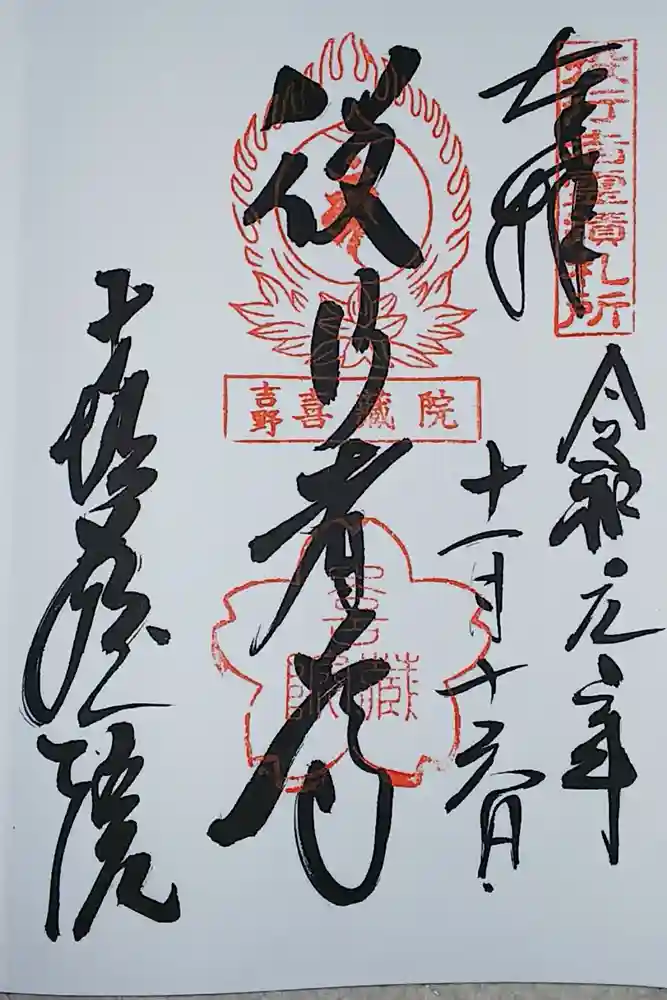 役行者霊蹟札所
奉拝
令和元年
十一月十六日
役行者
吉野 喜蔵院
喜蔵院
喜蔵院